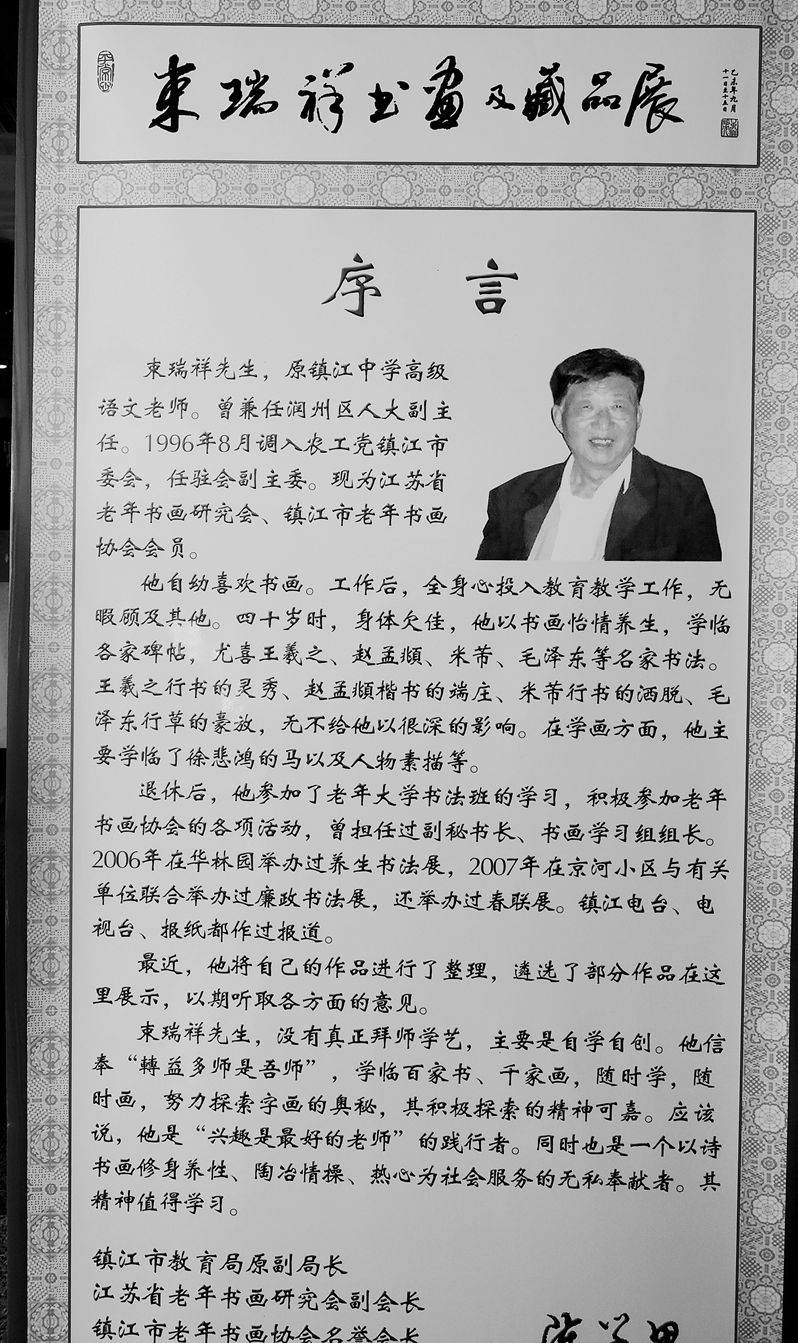 束瑞祥书画及藏品展
乙未年九月
十一日至十五日
序言
束瑞祥先生，原镇江中学高级
语文老师。曾兼任润州区人大副主
任。1996年8月调入农工党镇江市
委会，任驻会副主委。现为江苏省
老年书画研究会、镇江市老年书画
协会会员。
他自幼喜欢书画。工作后，全身心投入教育教学工作，无
暇顾及其他。四十岁时，身体欠佳，他以书画怡情养生，学临
各家碑帖，尤喜王羲之、赵孟頫、米芾、毛泽东等名家书法。
王羲之行书的灵秀、赵孟頫楷书的端庄、米芾行书的洒脱、毛
泽东行草的豪放，无不给他以很深的影响。在学画方面，他主
要学临了徐悲鸿的马以及人物素描等。
退休后，他参加了老年大学书法班的学习，积极参加老年
书画协会的各项活动，曾担任过副秘书长、书画学习组组长。
2006年在华林园举办过养生书法展，2007年在京河小区与有关
单位联合举办过廉政书法展，还举办过春联展。镇江电台、电
视台、报纸都作过报道。
最近，他将自己的作品进行了整理，遴选了部分作品在这
里展示，以期听取各方面的意见。
束瑞祥先生，没有真正拜师学艺，主要是自学自创。他信
奉“轉益多师是吾师”，学临百家书、千家画，随时学，随
时画，努力探索字画的奥秘，其积极探索的精神可嘉。应该
说，他是“兴趣是最好的老师”的践行者。同时也是一个以诗
书画修身养性、陶冶情操、热心为社会服务的无私奉献者。其
精神值得学习。
镇江市教育局原副局长
江苏省老年书画研究会副会长
镇江市老年书画协会名誉会长